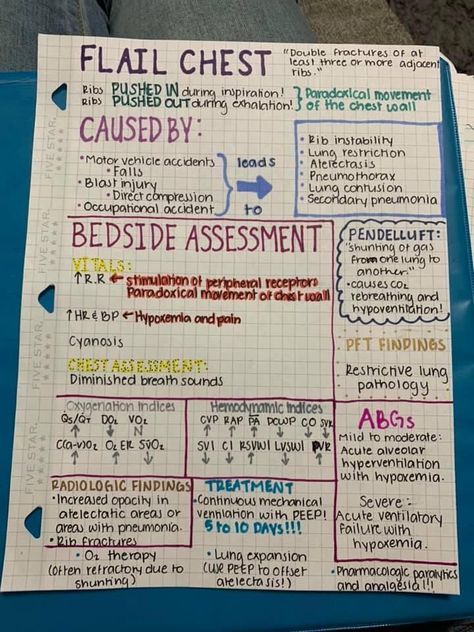 FLAIL CHEST
"Double fractures of at
least three or more adjacent
ribs."
Ribs PUSHED IN during inspiration!
Ribs PUSHED OUT during exhalation!
Paradoxical movement
of the chest wall
CAUSED BY:
• Motor vehicle accidents
• Falls
• Blast injury
• Direct compression
• Occupational accident
leads
to
• Rib instability
• Lung restriction
• Atelectasis
• Pneumothorax
• Lung contusion
• Secondary pneumonia
BEDSIDE ASSESSMENT
VITALS:
↑R.R ← stimulation of peripheral receptors
Paradoxical movement of chest wall
↑HR & BP ← Hypoxemia and pain
Cyanosis
CHEST ASSESSMENT:
Diminished breath sounds
PENDELLUFT:
"shunting of gas
from one lung to
another."
• causes CO2
rebreathing and
hypoventilation!
PFT FINDINGS
Restrictive lung
pathology
Oxygenation Indices
Qs/QT DO2 VO2
↑ ↓ N
C(a-v)O2 O2ER SvO2
Hemodynamic Indices
CVP RAP PA PCWP CO SV
SVI CI RSVWI LVSWI PVR
ABGs
Mild to moderate:
Acute alveolar
hyperventilation
with hypoxemia.
Severe:
Acute ventilatory
Failure with
hypoxemia.
RADIOLOGIC FINDINGS
• Increased opacity in
atelectatic areas or
areas with pneumonia.
• Rib fractures
TREATMENT
• Continuous mechanical
ventilation with PEEP!
5 to 10 DAYS!!!
• O2 therapy
(often refractory due to
shunting)
• Lung expansion
(use PEEP to offset
atelectasis!)
• Pharmacologic paralytics
and analgesia!!!
FIVE STAR.
FIVE STAR.
FIVE STAR.